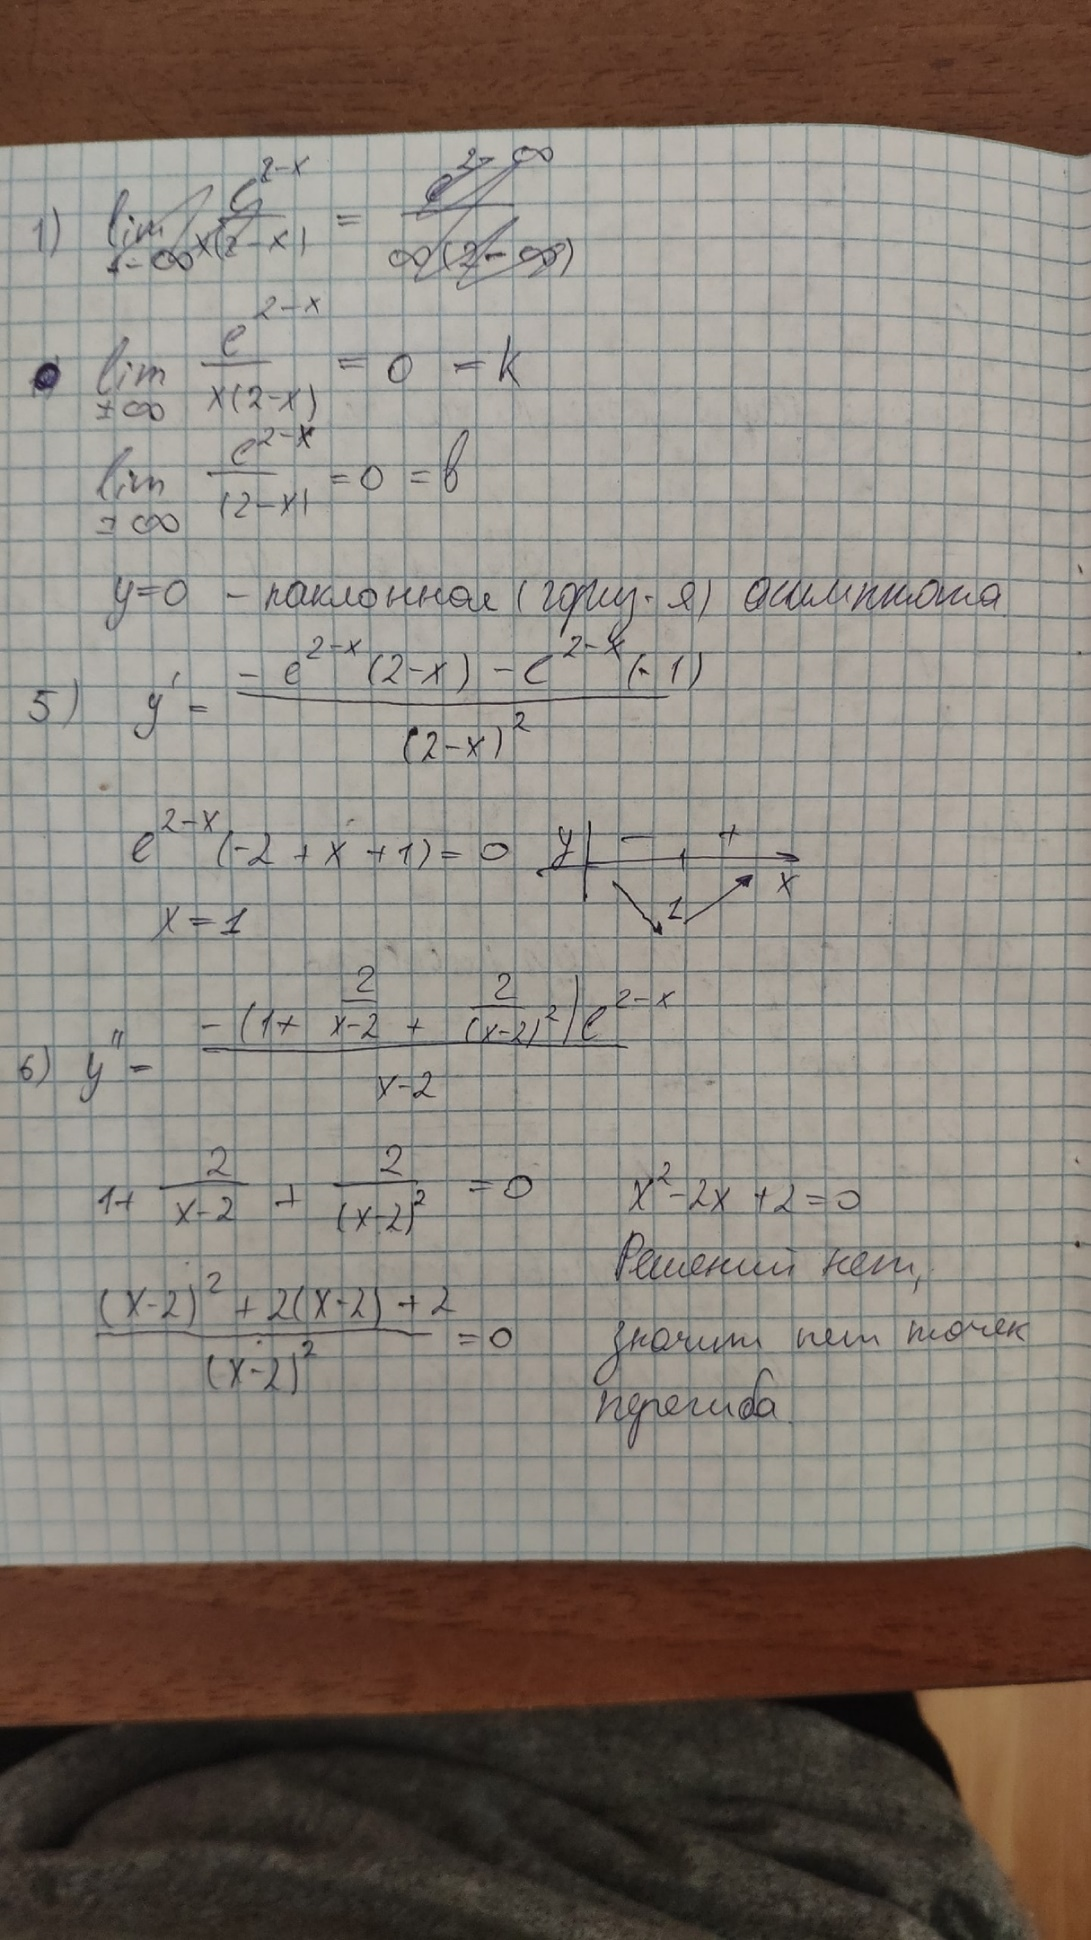 1) lim x→∞ e^(2-x) / x(2-x) = e^(2-∞) / ∞(2-∞)
lim →∞ e^(2-x) / x(2-x) = 0 = k
lim →∞ e^(2-x) / (2-x) = 0 = b
y=0 - наклонная (гориз-я) асимптота
5) y' = (-e^(2-x) (2-x) - e^(2-x) (-1)) / (2-x)^2
e^(2-x) (-2 + x + 1) = 0 y - + x
x = 1 1
6) y'' = (-(1+ 2/(x-2) + 2/(x-2)^2) e^(2-x)) / (x-2)
1+ 2/(x-2) + 2/(x-2)^2 = 0 x^2-2x+2=0
Решений нет,
((x-2)^2 + 2(x-2) + 2) / (x-2)^2 = 0 значит нет точек
перегиба